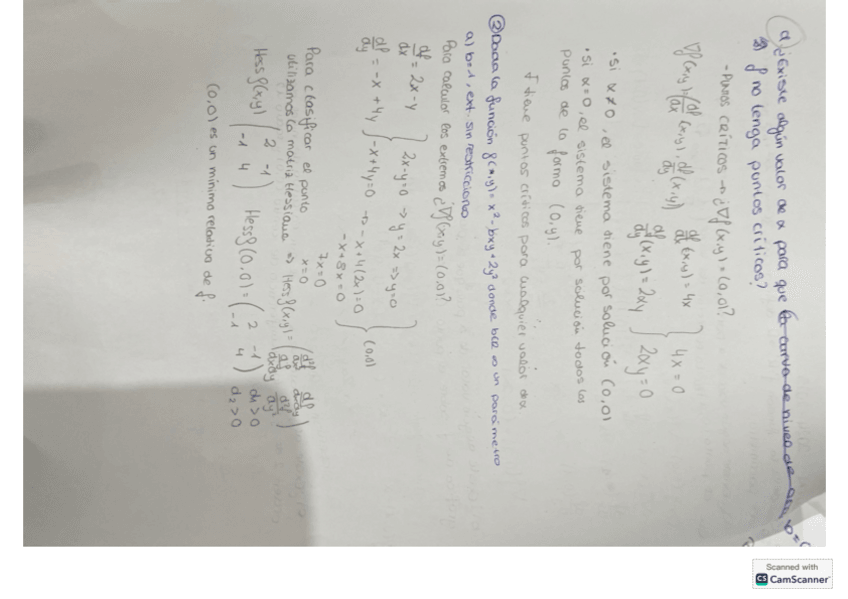 d) ¿Existe algún valor de α para que la curva de nivel de
f no tenga puntos críticos?
- Puntos críticos → ¿∇f(x,y)=(0,0)?
∇f(x,y)=(df/dx (x,y), df/dy (x,y)) df/dx (x,y)=4x } 4x=0
df/dy (x,y)=2αy } 2αy=0
· Si α≠0, el sistema tiene por solución (0,0)
· Si α=0, el sistema tiene por solución todos los
puntos de la forma (0,y).
f tiene puntos críticos para cualquier valor de α
② Dada la función f(x,y)=x²-bxy+2y² donde b∈ℝ es un parámetro
a) b=1, ext. sin restricciones
Para calcular los extremos ¿∇f(x,y)=(0,0)?
df/dx = 2x-y } 2x-y=0 → y=2x → y=0
df/dy = -x+4y } -x+4y=0 → -x+4(2x)=0 } (0,0)
-x+8x=0
7x=0
x=0
Para clasificar el punto
utilizamos la matriz Hessiana → Hess f(x,y)=
Hess f(x,y) (2 -1
-1 4) Hess f(0,0)=(2 -1
-1 4) d1>0
d2>0
(0,0) es un mínimo relativo de f.
Scanned with
CS CamScanner